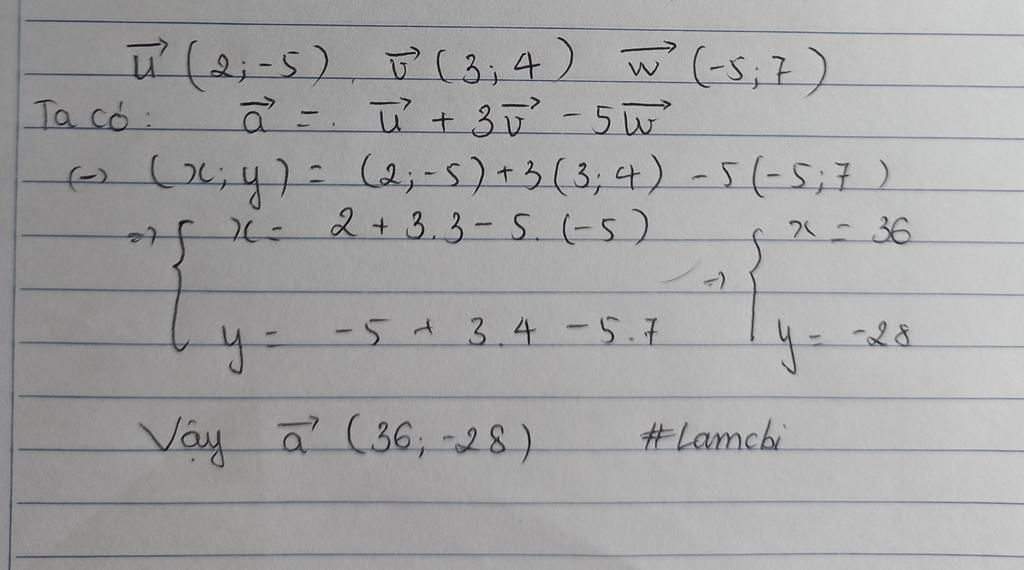 u⃗ (2;-5) v⃗ (3;4) w⃗ (-5;7)
Ta có: a⃗ = u⃗ + 3v⃗ - 5w⃗
(-) (x;y) = (2;-5)+3(3;4) -5(-5;7)
=> { x = 2 + 3.3 - 5.(-5) => { x = 36
y = -5 + 3.4 - 5.7 y = -28
Vậy a⃗ (36;-28) #Lamchi